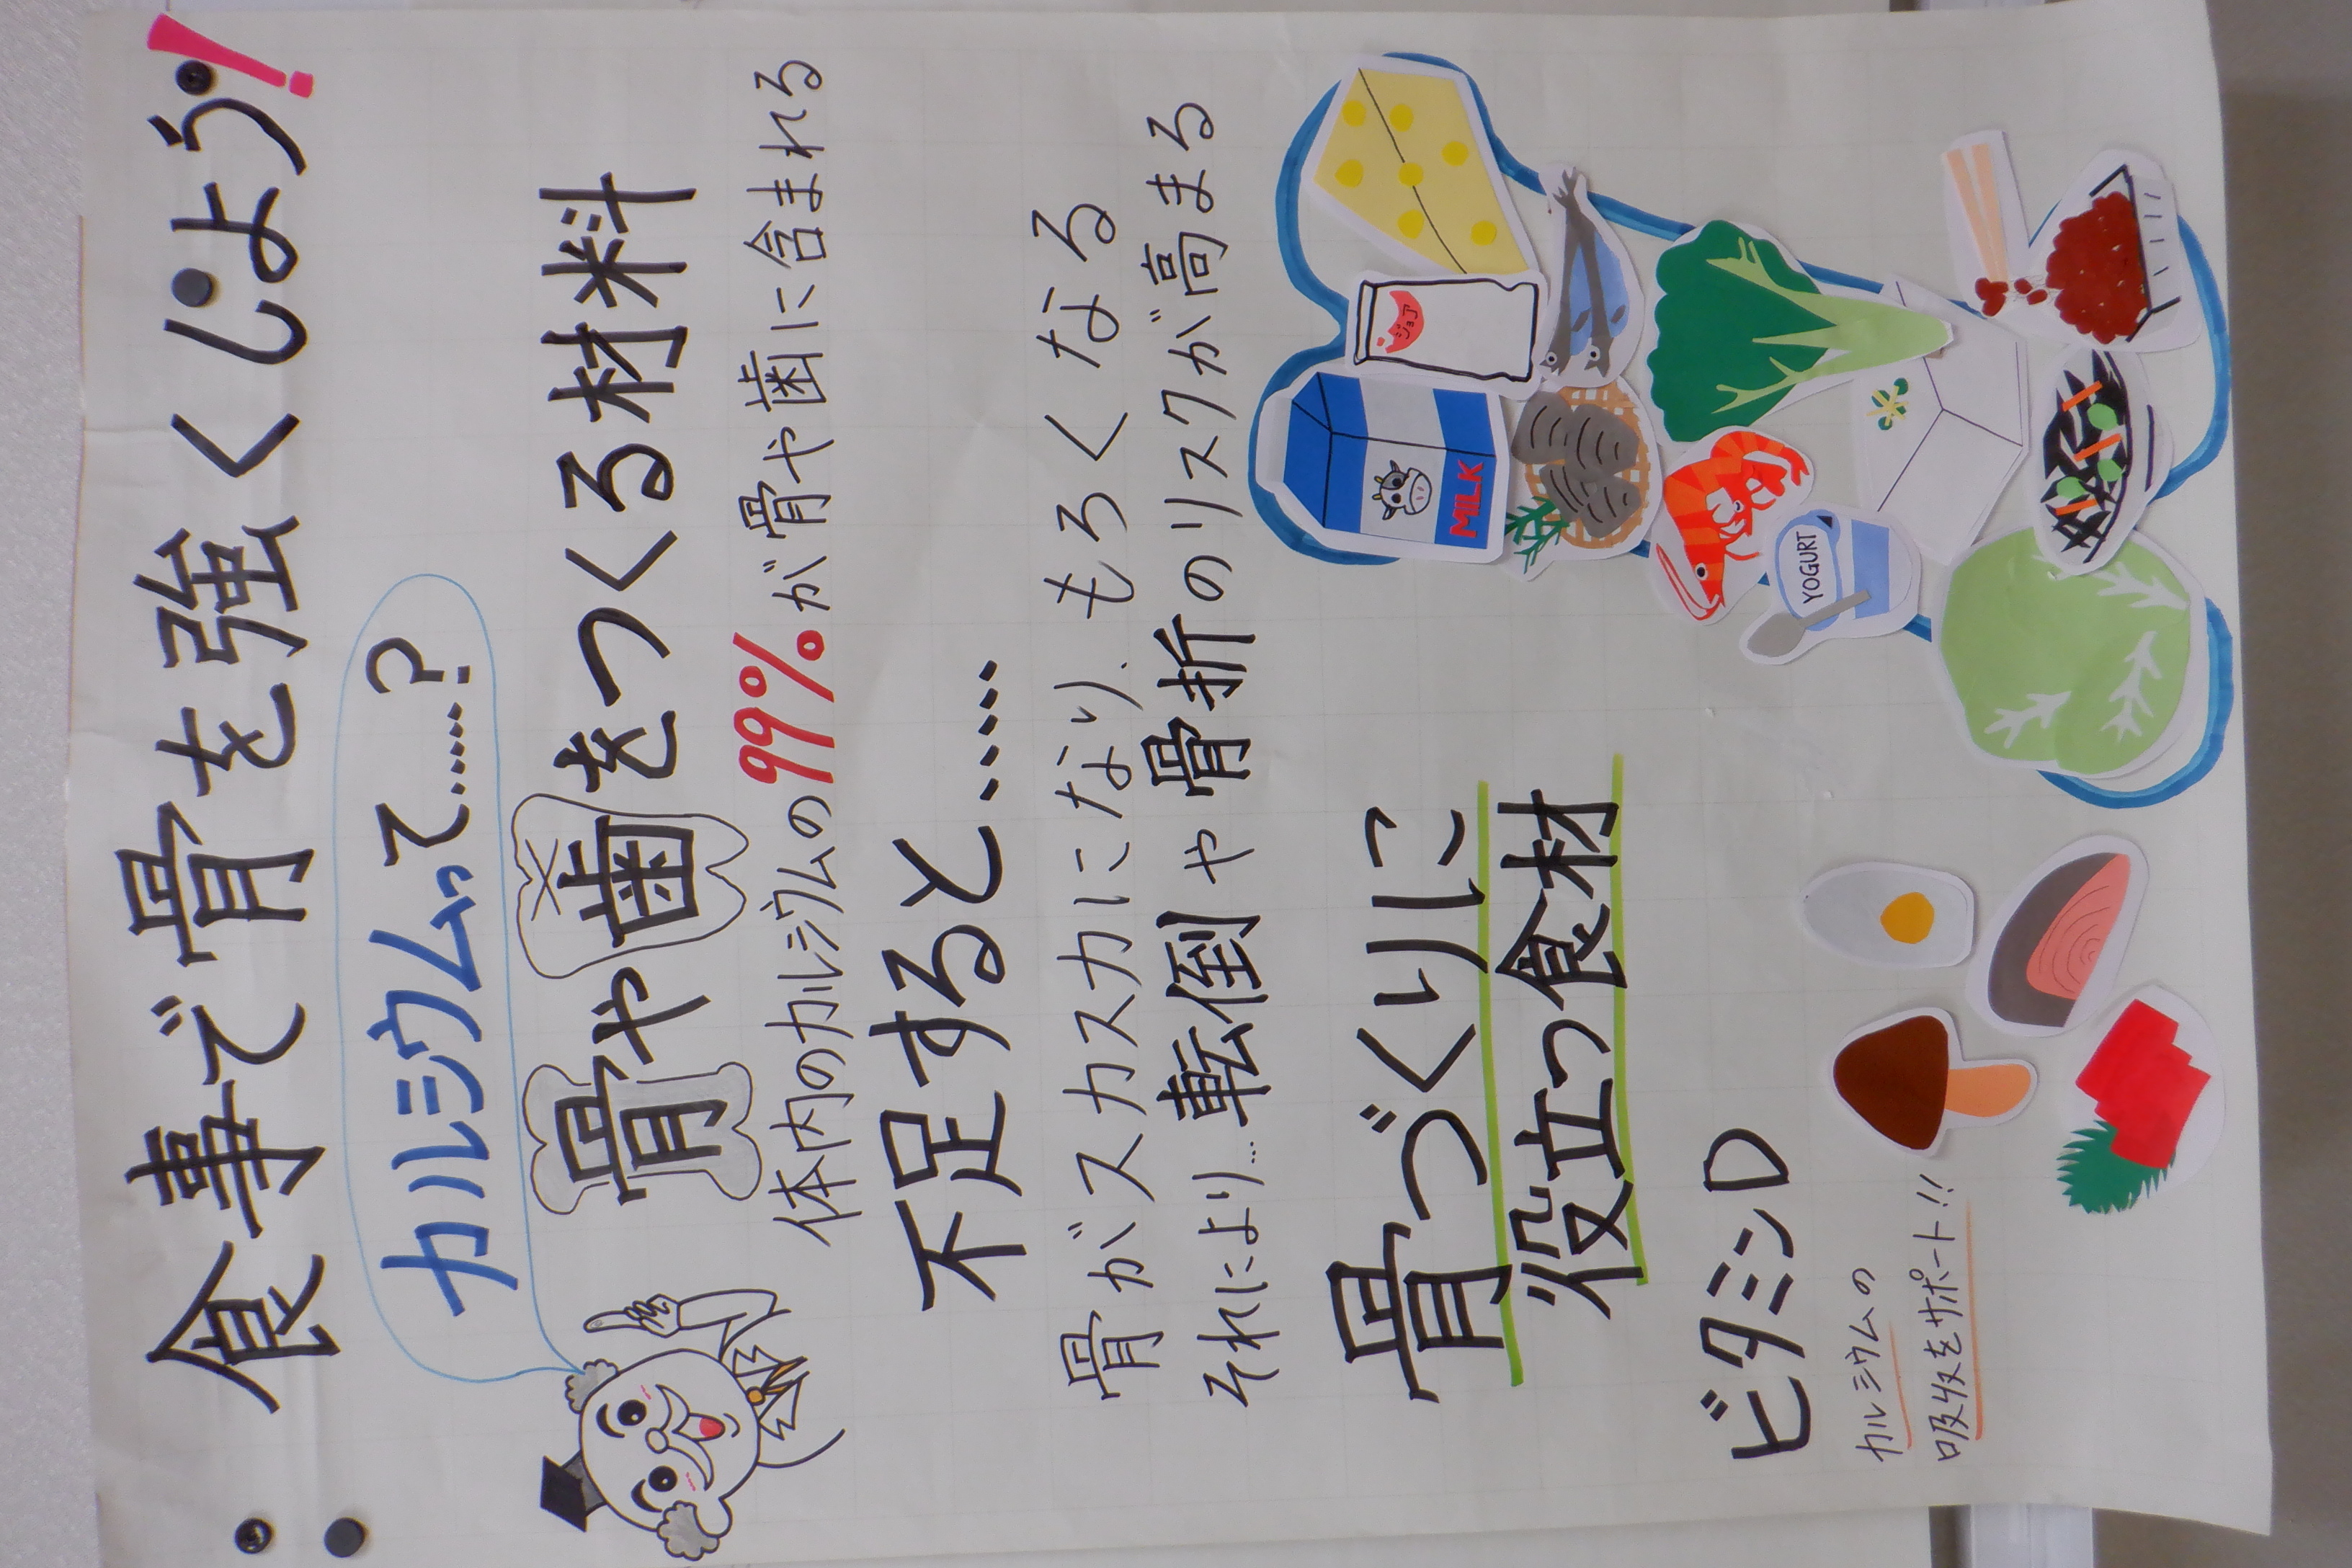 食事で骨を強くしよう!
カルシウムって……?
骨や歯をつくる材料
体内のカルシウムの99%が骨や歯に含まれる
不足すると……
骨がスカスカになり、もろくなる
それにより…転倒や骨折のリスクが高まる
骨づくりに
役立つ食材
ビタミンD
カルシウムの
吸収をサポート!!
MILK
ジョア
YOGURT